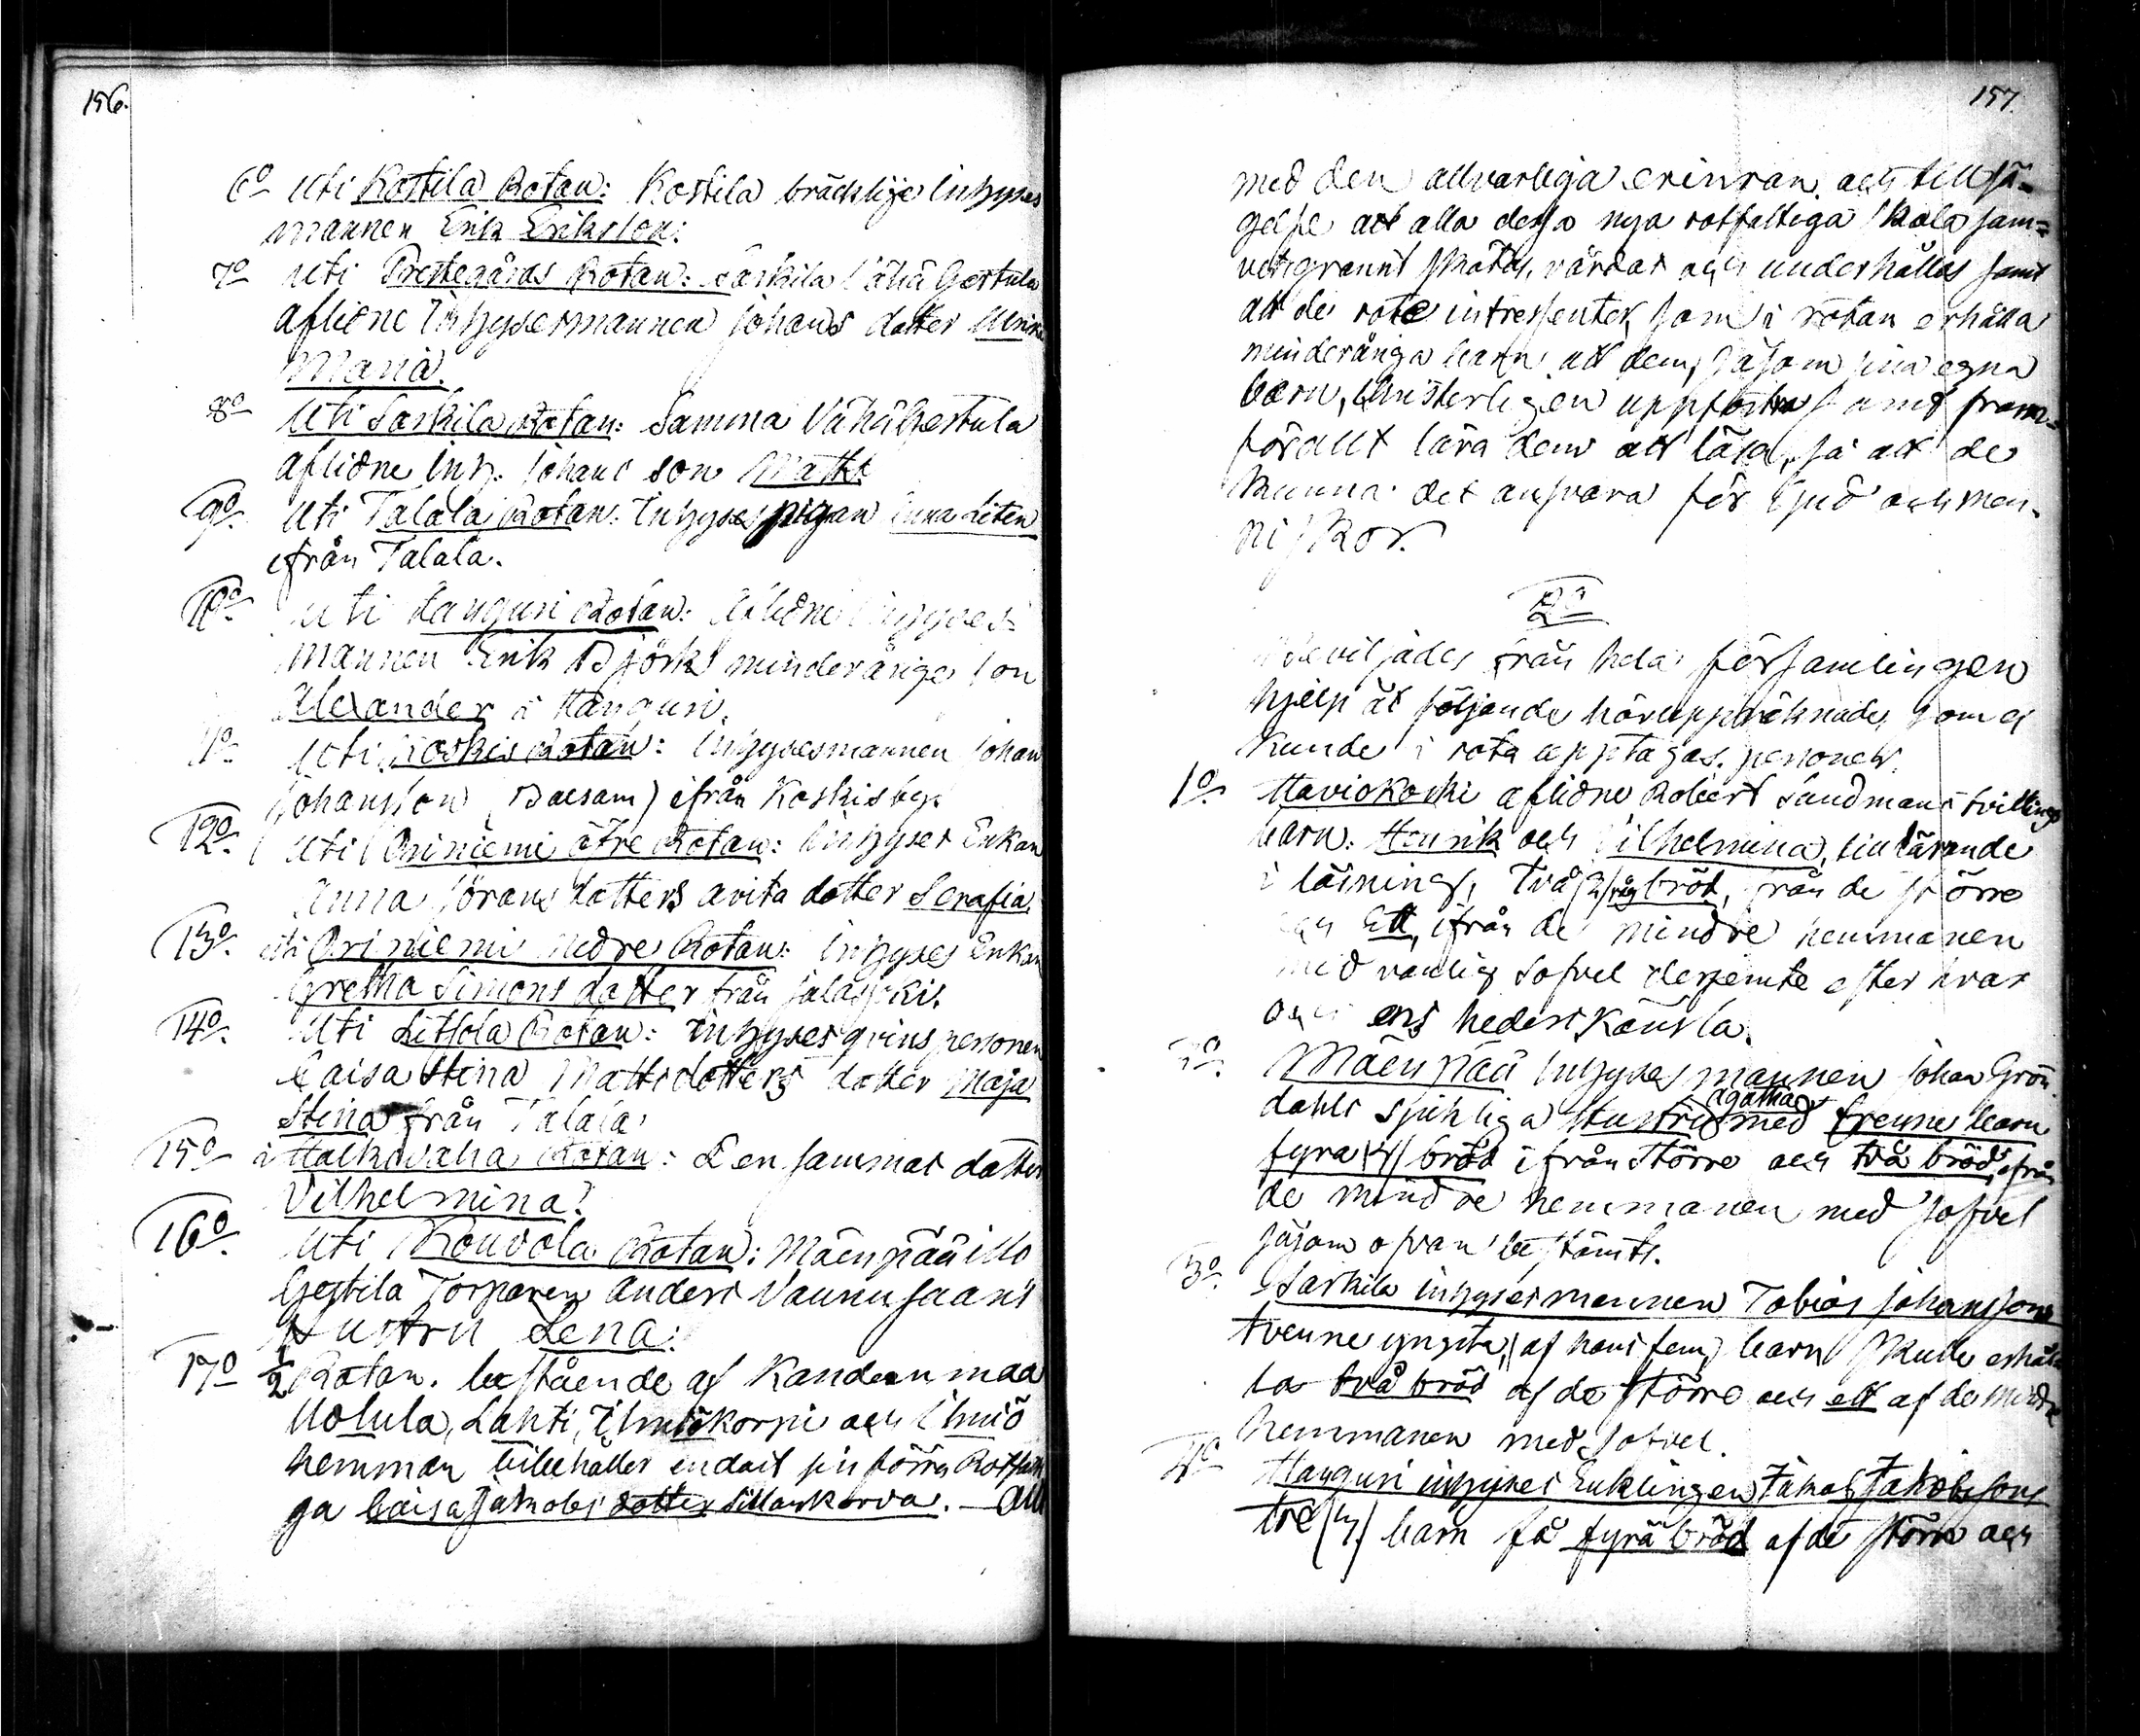 156.
6o Uti Kostila Rotan: Kostila bräcklige Inhyses
mannen Erik Eriksson:
7o Uti Prestegårds Rotan: Sarkila Vähä Gestula
aflidne Inhysesmannen Johans dotter Ulrika
Maria.
8o Uti Sarkila Rotan: Samma Vähä Gestula
aflidne Inh. Johans son Matts
9o Uti Talala Rotan: Inhyses pigan Anna Liten
ifrån Talala.
10o Uti Hanguri Rotan: Aflidne Inhyses
mannen Erik Björks minderårige son
Alexander i Hanguri.
11o Uti Koskis Rotan: Inhysesmannen Johan
Johansson (Balsam) ifrån Koskis by.
12o Uti Oriniemi öfre Rotan: Inhyses Enkan
Anna Görans dotters avita dotter Serafia.
13o uti Oriniemi nedre Rotan: Inhyses Enkan
Gretha Simons dotter från Jalasjoki.
14o Uti Littola Rotan: Inhyses qvins personen
Caisa Stina Matts dotters dotter Maja
Stina från Talala
15o i Halkivaha Rotan: Den sammas dotter
Vilhelmina.
16o Uti Kouvola Rotan: Mäenpää illo
Gestila Torparen Anders Vaunusaaris
Hustru Lena:
17o ½ Rotan. bestående af Kandenmaa
Uotula, Lahti, Ilmiskorpi och Ilmiö
hemman bibehåller endast sin förra Rotfatti
ga Caisa Jakobs dotter Sillankorva. — Allt
157.
med den allvarliga erinran och tillsä-
gelse att alla dessa nya rotfattiga skola sam-
vetsgrannt skötas, vårdas och underhållas samt
att de rote intressenter, som i rotan erhålla
minderåriga barn, att dem, såsom sina egna
barn, Christerligen uppfostra samt fram-
för allt lära dem att läsa, så att de
kunna det ansvara för Gud och men-
niskor.
2o
Beviljades från hela församlingen
hjelp åt följande häruppräknade, som ej
kunde i rota upptagas, personer.
1o Haviokoski aflidne Robert Sandmans tvillings
barn: Henrik och Vilhelmina, sin lärande
i läsning, två (2) råg bröd, från de större
och Ett, ifrån de mindre hemmanen
med vanlig sofvel derjemte efter hvar
och ens hederskänsla.
2o Mäenpää Inhyses mannen Johan Grön
dahls sjukliga Hustru Agatha med trenne barn
fyra (4) bröd ifrån större och två bröd ifrån
de mindre hemmanen med sofvel
såsom ofvan bestämts.
3o Sarkila inhyses mannen Tobias Johanssons
tvenne yngsta, (af hans fem) barn skulle erhål
la två bröd af de större och ett af de mindre
hemmanen med sofvel.
4o Hanguri inhyses Enklingen Jakob Jakobssons
tre (3) barn få fyra bröd af de större och